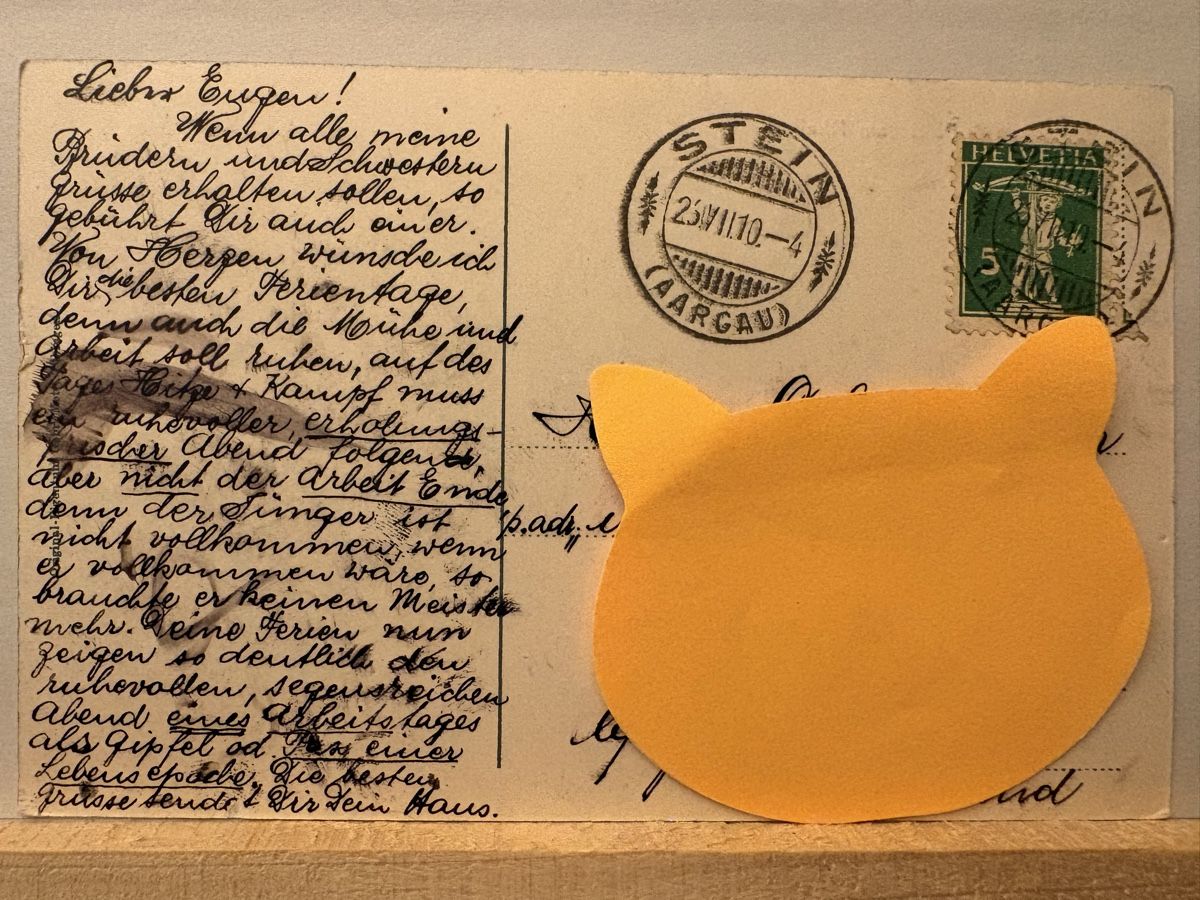 Lieber Eugen!
Wenn alle meine
Brüdern und Schwestern
grüsse erhalten sollen, so
gebührt Dir auch einer.
Von Herzen wünsche ich
Dir die besten Ferientage,
denn auch die Mühe und
Arbeit soll ruhen, auf des
Tages Hitze + Kampf muss
ein ruhevoller, erholungs-
frischer Abend folgen,
aber nicht der Arbeit Ende
denn der Jünger ist
nicht vollkommen, wenn
er vollkommen wäre, so
brauchte er keinen Meister
mehr. Deine Ferien nun
zeigen so deutlich den
ruhevollen, segensreichen
Abend eines Arbeitstages
als Gipfel od. Pass einer
Lebensepoche. Die besten
Grüsse sendet Dir Dein Hans.
STEIN
23.VII.10.-4
(AARGAU)
HELVETIA
5
STEIN
(AARGAU)
p. adr.